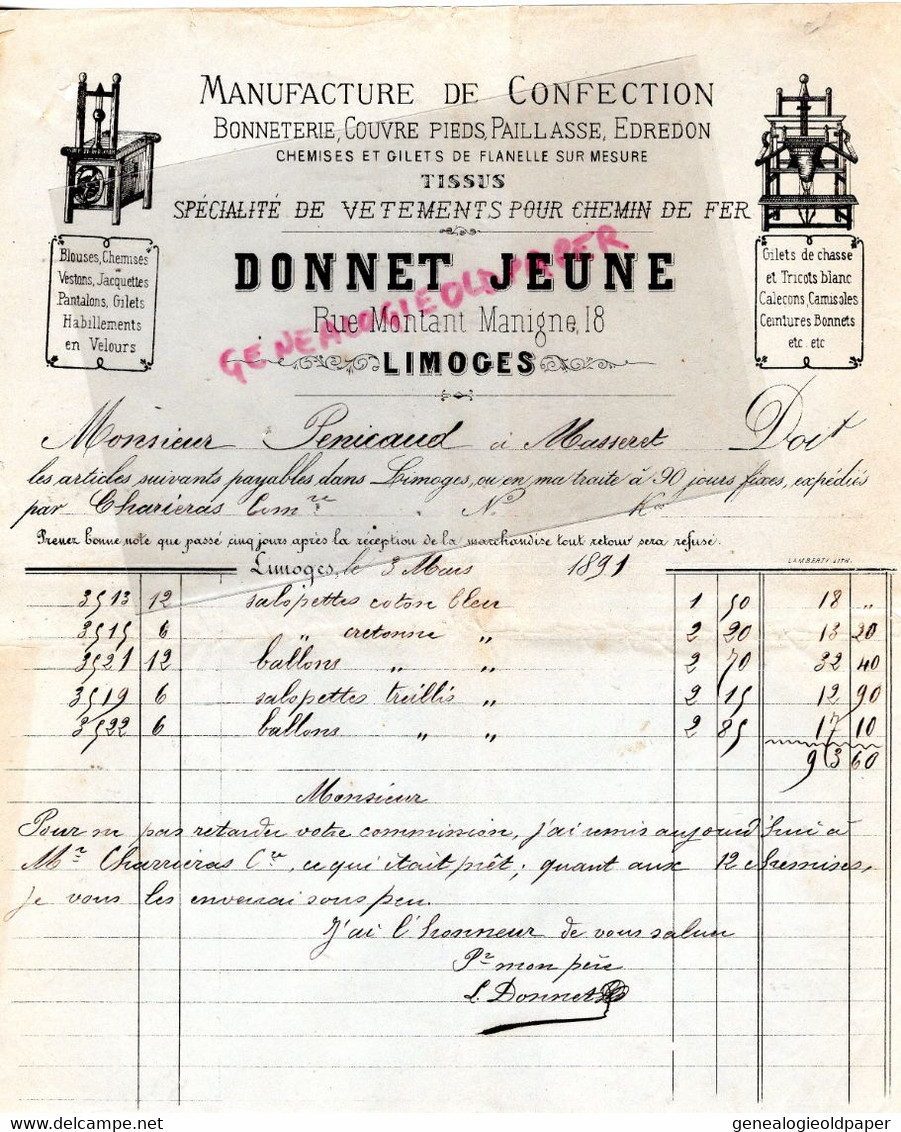 MANUFACTURE DE CONFECTION
BONNETERIE, COUVRE PIEDS, PAILLASSE, EDREDON
CHEMISES ET GILETS DE FLANELLE SUR MESURE
TISSUS
SPÉCIALITÉ DE VETEMENTS POUR CHEMIN DE FER
Blouses, Chemises
Vestons, Jacquettes
Pantalons, Gilets
Habillements
en Velours
DONNET JEUNE
Rue Montant Manigne, 18
LIMOGES
Gilets de chasse
et Tricots blanc
Caleçons, Camisoles
Ceintures Bonnets
etc. etc
GENEALOGIE OLD PAPER
Monsieur Penicaud à Masseret Doit
les articles suivants payables dans Limoges, ou en ma traite à 90 jours fixes, expédiés
par Chariéras Com^re N° K^os
Prenez bonne note que passé cinq jours après la réception de la marchandise tout retour sera refusé.
LAMBERTY LITH.
Limoges, le 3 Mars 1891
3513 12 salopettes coton bleu 1 50 18 "
3515 6 " cretonne " 2 20 13 20
3521 12 ballons " " 2 70 32 40
3519 6 salopettes treillis " 2 15 12 90
3522 6 ballons " " 2 85 17 10
93 60
Monsieur
Pour ne pas retarder votre commission, j'ai remis aujourd'hui à
M^r Charriéras C^re, ce qui était prêt; quant aux 12 chemises,
je vous les enverrai sous peu.
J'ai l'honneur de vous saluer
P^r mon père
L. Donnet
delcampe.net
genealogieoldpaper